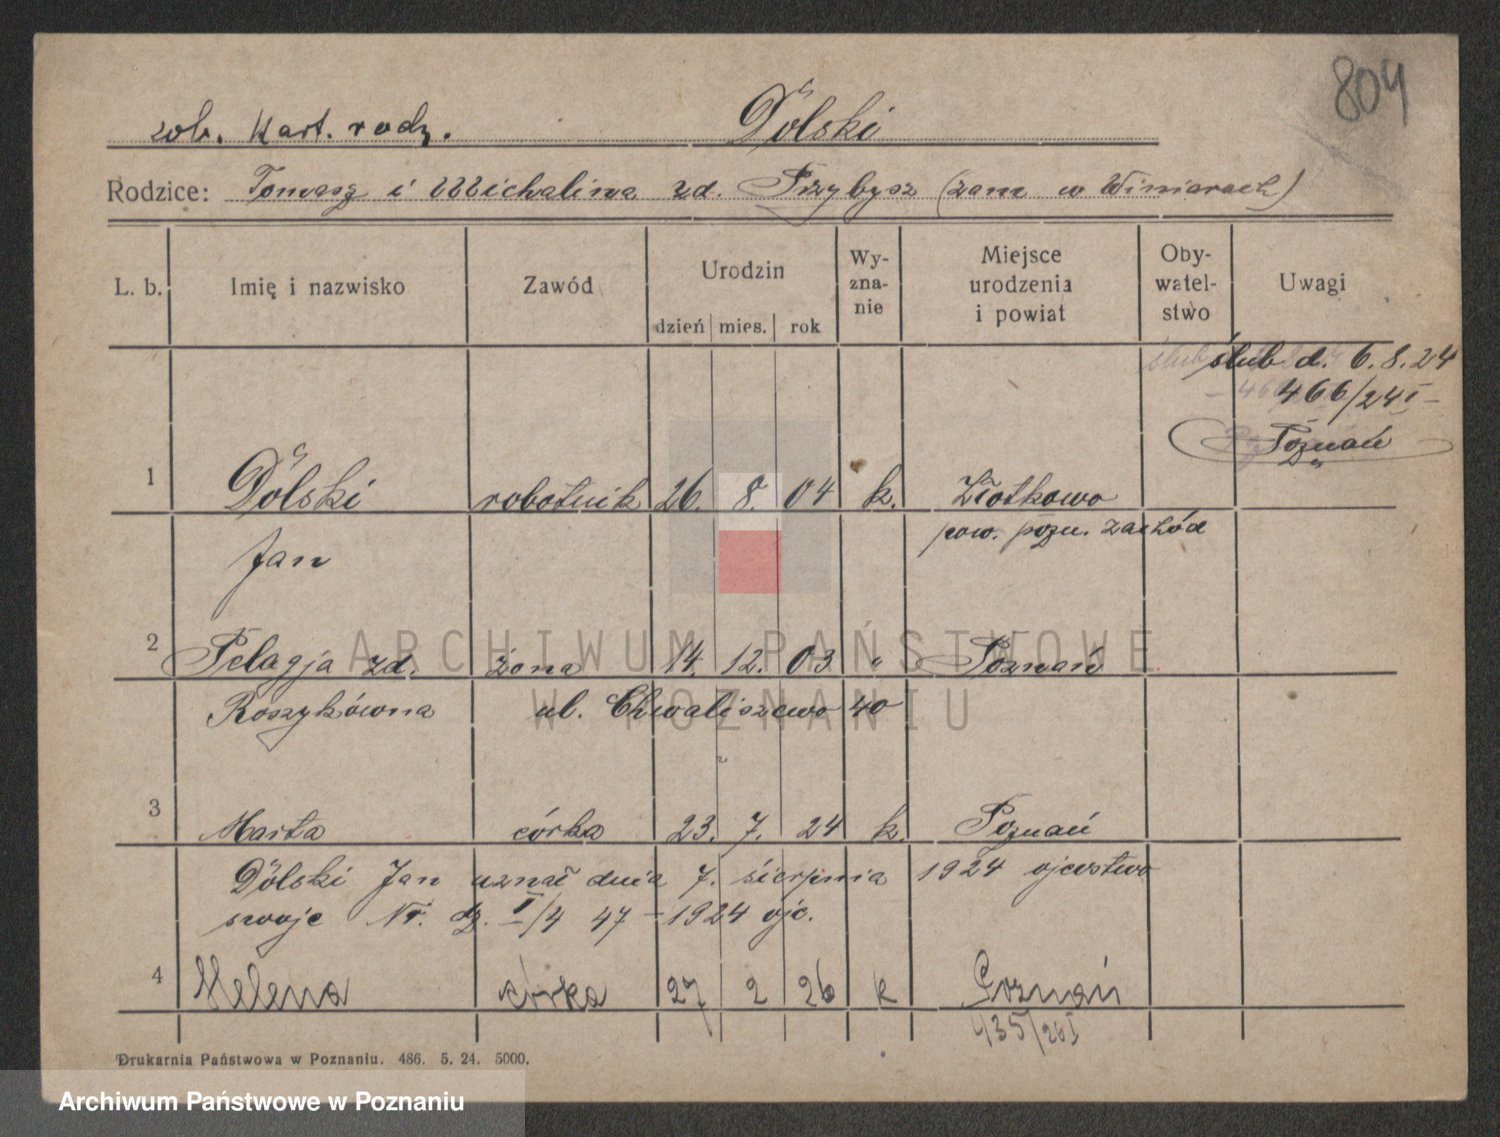 804
zob. Kart. rodz. Dólski
Rodzice: Tomasz i Michalina zd. Przybysz (zam w Winiarach)
L. b. Imię i nazwisko Zawód Urodzin dzień mies. rok Wy-zna-nie Miejsce urodzenia i powiat Oby-watel-stwo Uwagi
ślub d. 6.8.24
466/24 I -
Poznań
1 Dólski robotnik 26. 8. 04 k. Złotkowo
Jan pow. pozn. zachód
2 Pelagja zd. żona 14. 12. 03 " Poznań
Koszykówna ul. Chwaliszewo 40
3 Marta córka 23. 7. 24 k. Poznań
Dólski Jan uznał dnia 7. sierpnia 1924 ojcostwo
swoje Nr. dz. I/4 47 - 1924 ojc.
4 Helena córka 27 2 26 k Poznań
435/26 I
Drukarnia Państwowa w Poznaniu. 486. 5. 24. 5000.
ARCHIWUM PAŃSTWOWE
W POZNANIU
Archiwum Państwowe w Poznaniu